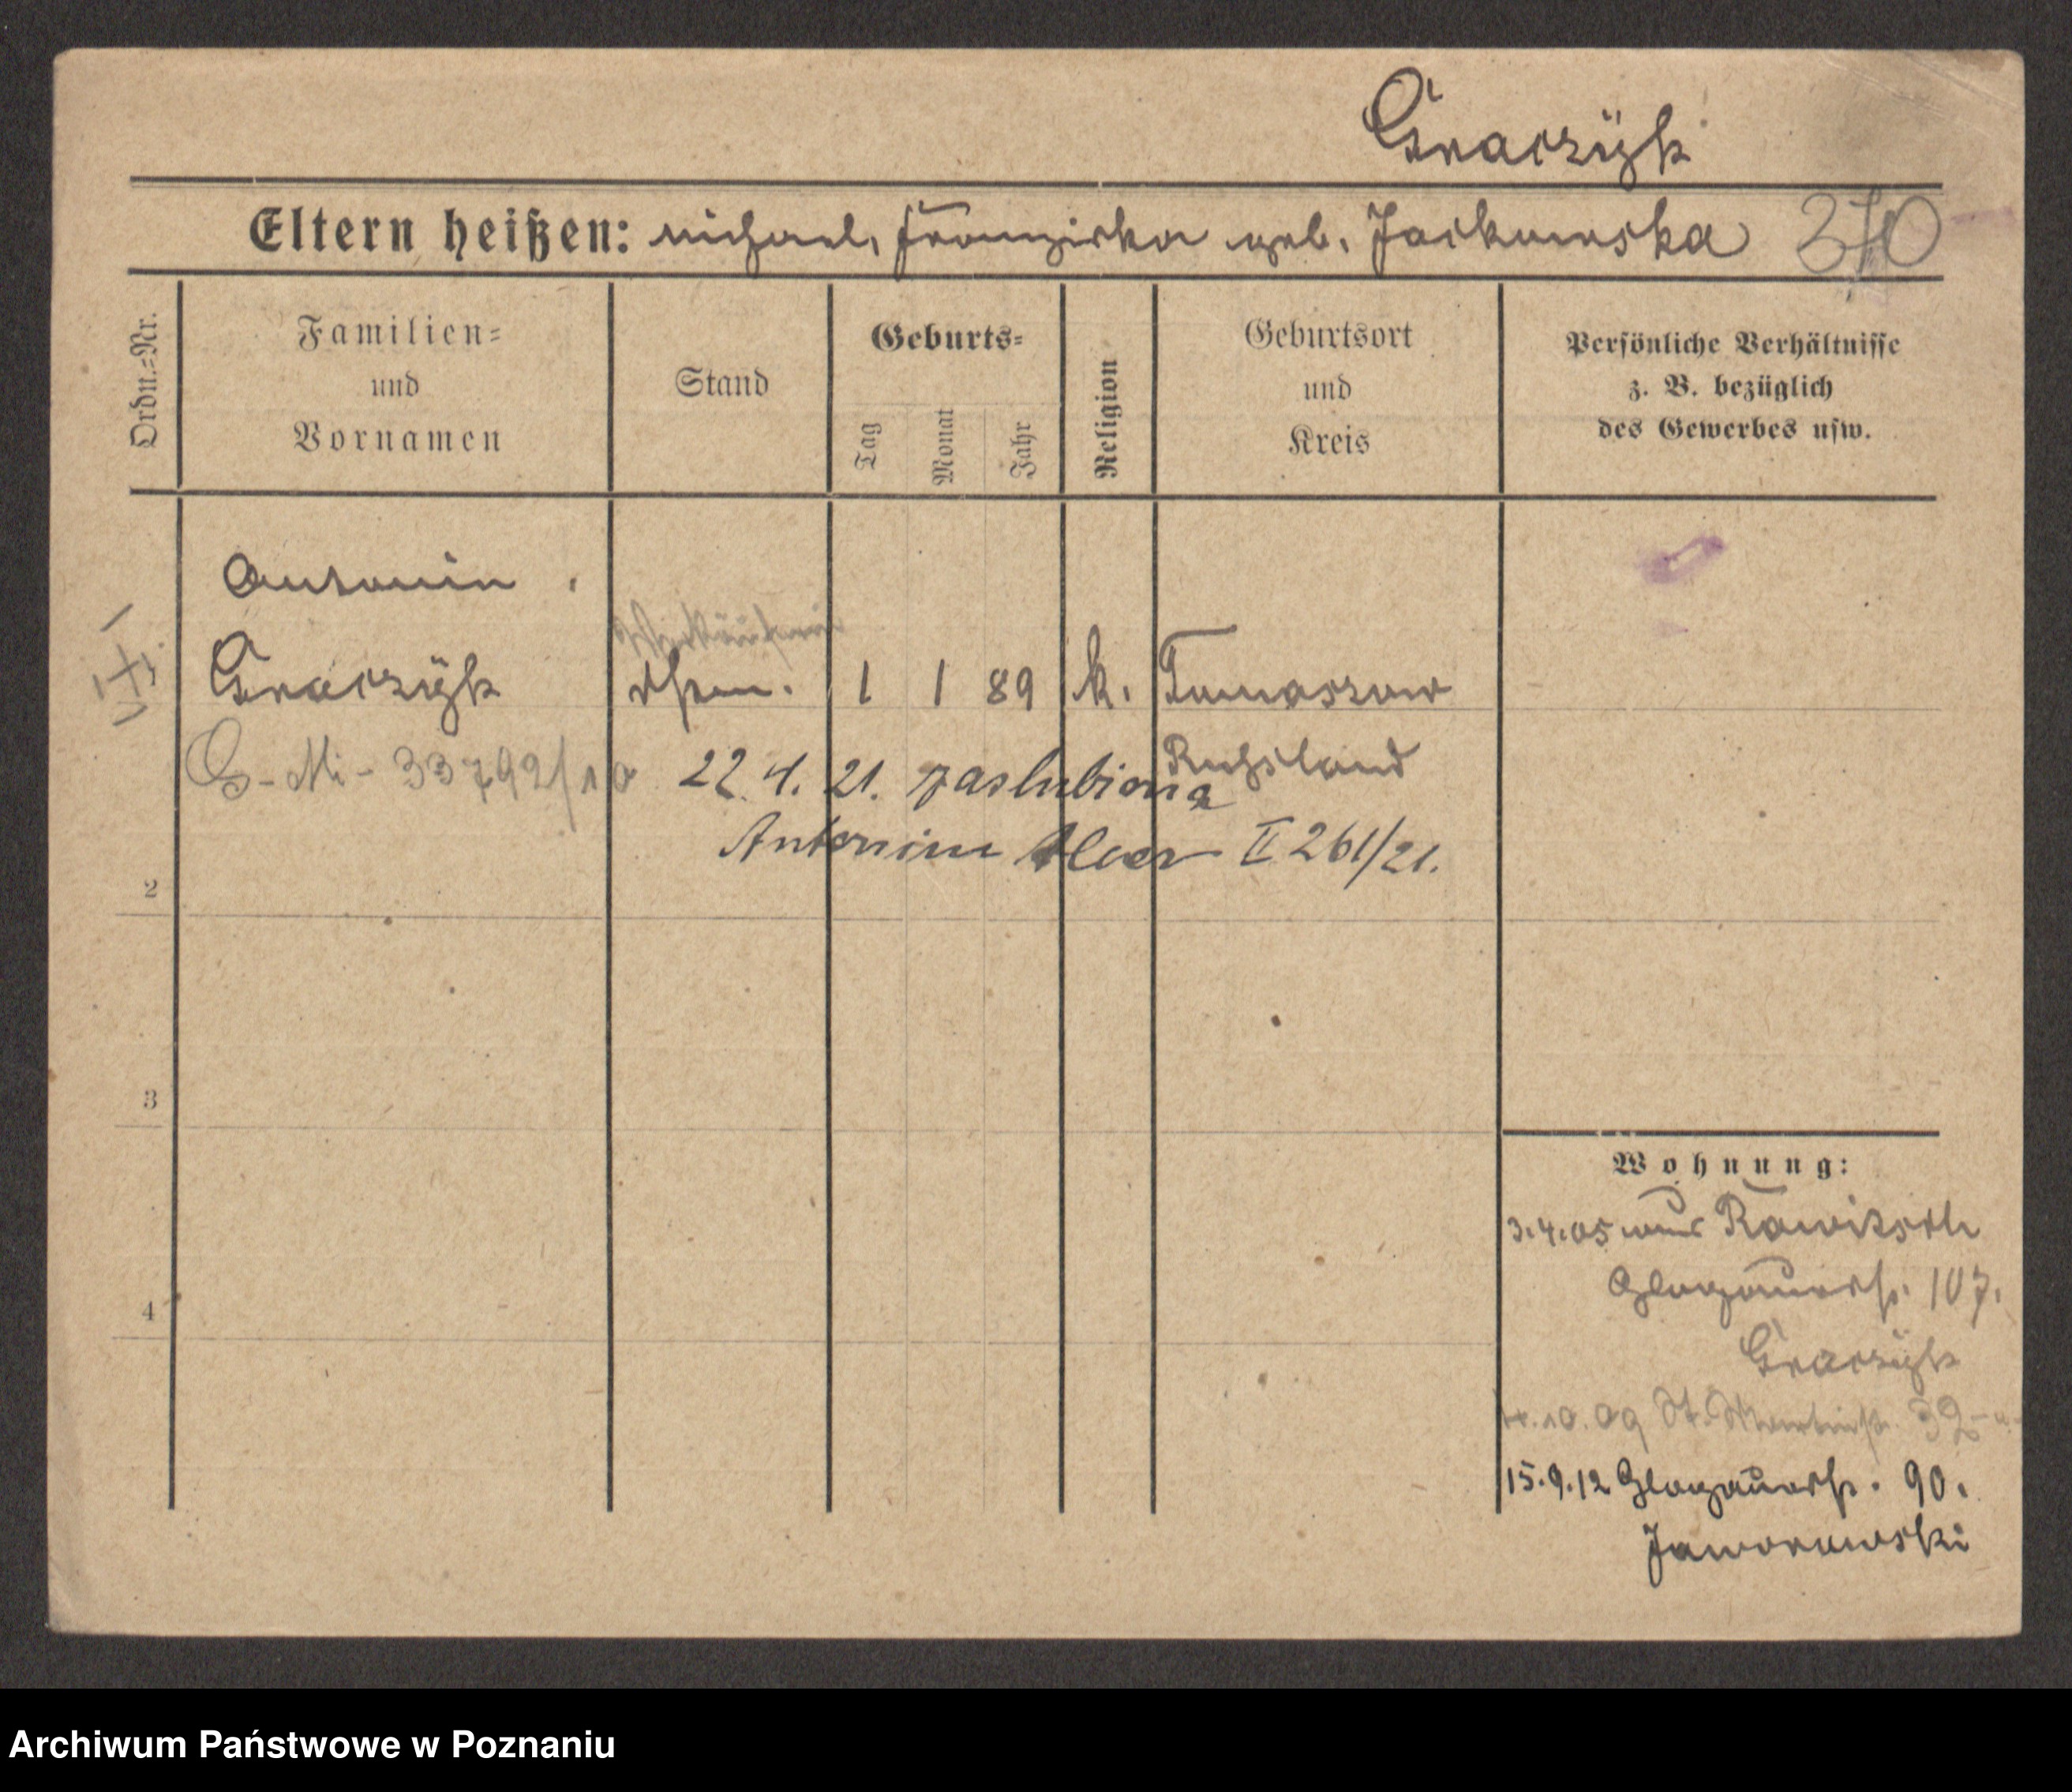 Graczÿk
Eltern heißen: Michael, Franziska geb. Jackowska 370
Ordn.-Nr.
Familien-
und
Vornamen
Stand
Geburts-
Tag
Monat
Jahr
Religion
Geburtsort
und
Kreis
Persönliche Verhältnisse
z. B. bezüglich
des Gewerbes usw.
Antonin
Verkäuferin
Graczÿk 1 1 89 k. Tomaszow
Russland
G-Mi-33792/10 22.4.21. zaslubiona
Antonim II 261/21.
2
3
4
Wohnung:
3.4.05 aus Rawitsch
Glogauerstr. 107.
Graczÿk
10.09 St. Martinstr. 32
15.9.12 Glogauerstr. 90.
Jaworowski
Archiwum Państwowe w Poznaniu